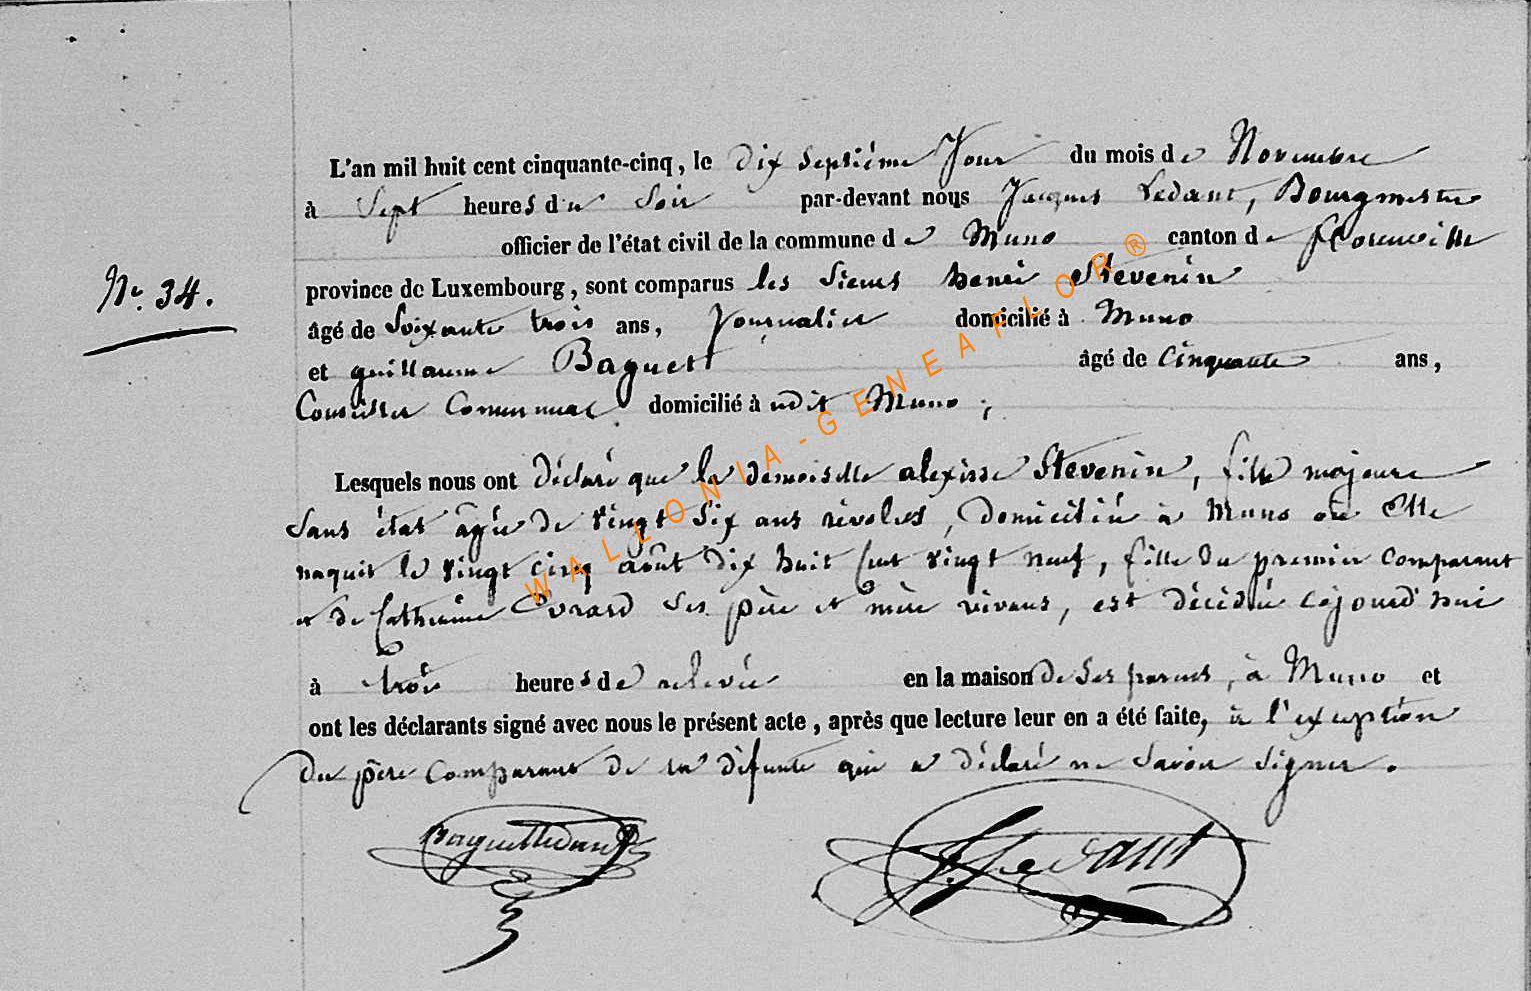 L'an mil huit cent cinquante-cinq, le dix septième Jour du mois de Novembre
à Sept heures du Soir par-devant nous Jacques Ledant, Bourgmestre
officier de l'état civil de la commune de Muno canton de florenville
N.° 34.
province de Luxembourg, sont comparus les Sieurs henri Stevenin
âgé de Soixante trois ans, Journalier domicilié à Muno
et guillaume Baguet âgé de Cinquante ans,
Conseiller Communal domicilié à udit Muno,
Lesquels nous ont déclaré que la demoiselle alexisse Stevenin, fille majeure
Sans état âgée de vingt Six ans révolus, domiciliée à Muno où Elle
naquit le vingt cinq août dix huit Cent vingt neuf, fille du premier comparant
et de Catherine Evrard Ses père et mère vivans, est décédée cejourd'hui
à trois heures de relevée en la maison de Ses parens, à Muno et
ont les déclarants signé avec nous le présent acte, après que lecture leur en a été faite, à l'exception
du père comparant de la défunte qui a déclaré ne Savoir Signer.
J. Ledant
WALLONIA-GENEAFLOR®